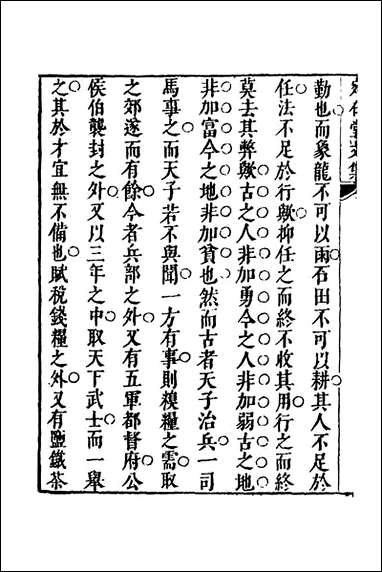 勤也而象龍不可以雨石田不可以耕其人不足於
任法不足於行歟抑任之而終不收其用行之而終
莫去其弊歟古之人非加勇今之人非加弱古之地
非加富今之地非加貧也然而古者天子治兵一司
馬事之而天子若不與聞一方有事則糗糧之需取
之郊遂而有餘今者兵部之外又有五軍都督府公
侯伯襲封之外又以三年之中取天下武士而一舉
之其於才宜無不備也賦稅錢糧之外又有鹽鐵茶